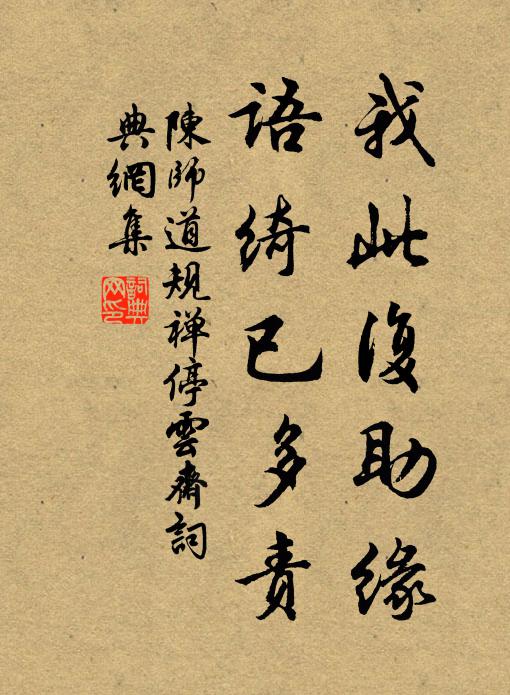 我此復助緣
語綺已多責
陳師道規禅停雲齋詞
典網集
詞典網印